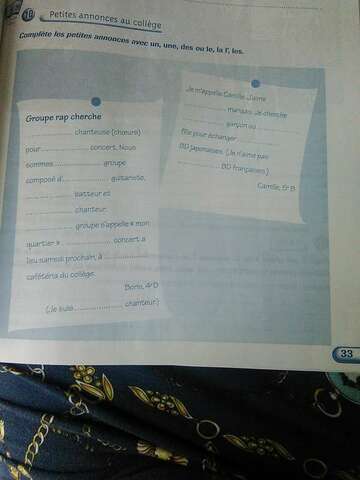 18 Petites annonces au collège
Complète les petites annonces avec un, une, des ou le, la l', les.
Groupe rap cherche
.................. chanteuse (chœurs)
pour .................. concert. Nous
sommes .................. groupe
composé d'.................. guitariste,
.................. batteur et
.................. chanteur.
.................. groupe s'appelle « mon
quartier ». .................. concert a
lieu samedi prochain, à ..................
cafétéria du collège.
Boris, 4e D
(Je suis .................. chanteur.)
Je m'appelle Camille. J'aime
.................. mangas. Je cherche
.................. garçon ou ..................
fille pour échanger ..................
BD japonaises. (Je n'aime pas
.................. BD françaises.)
Camille, 5e B
33